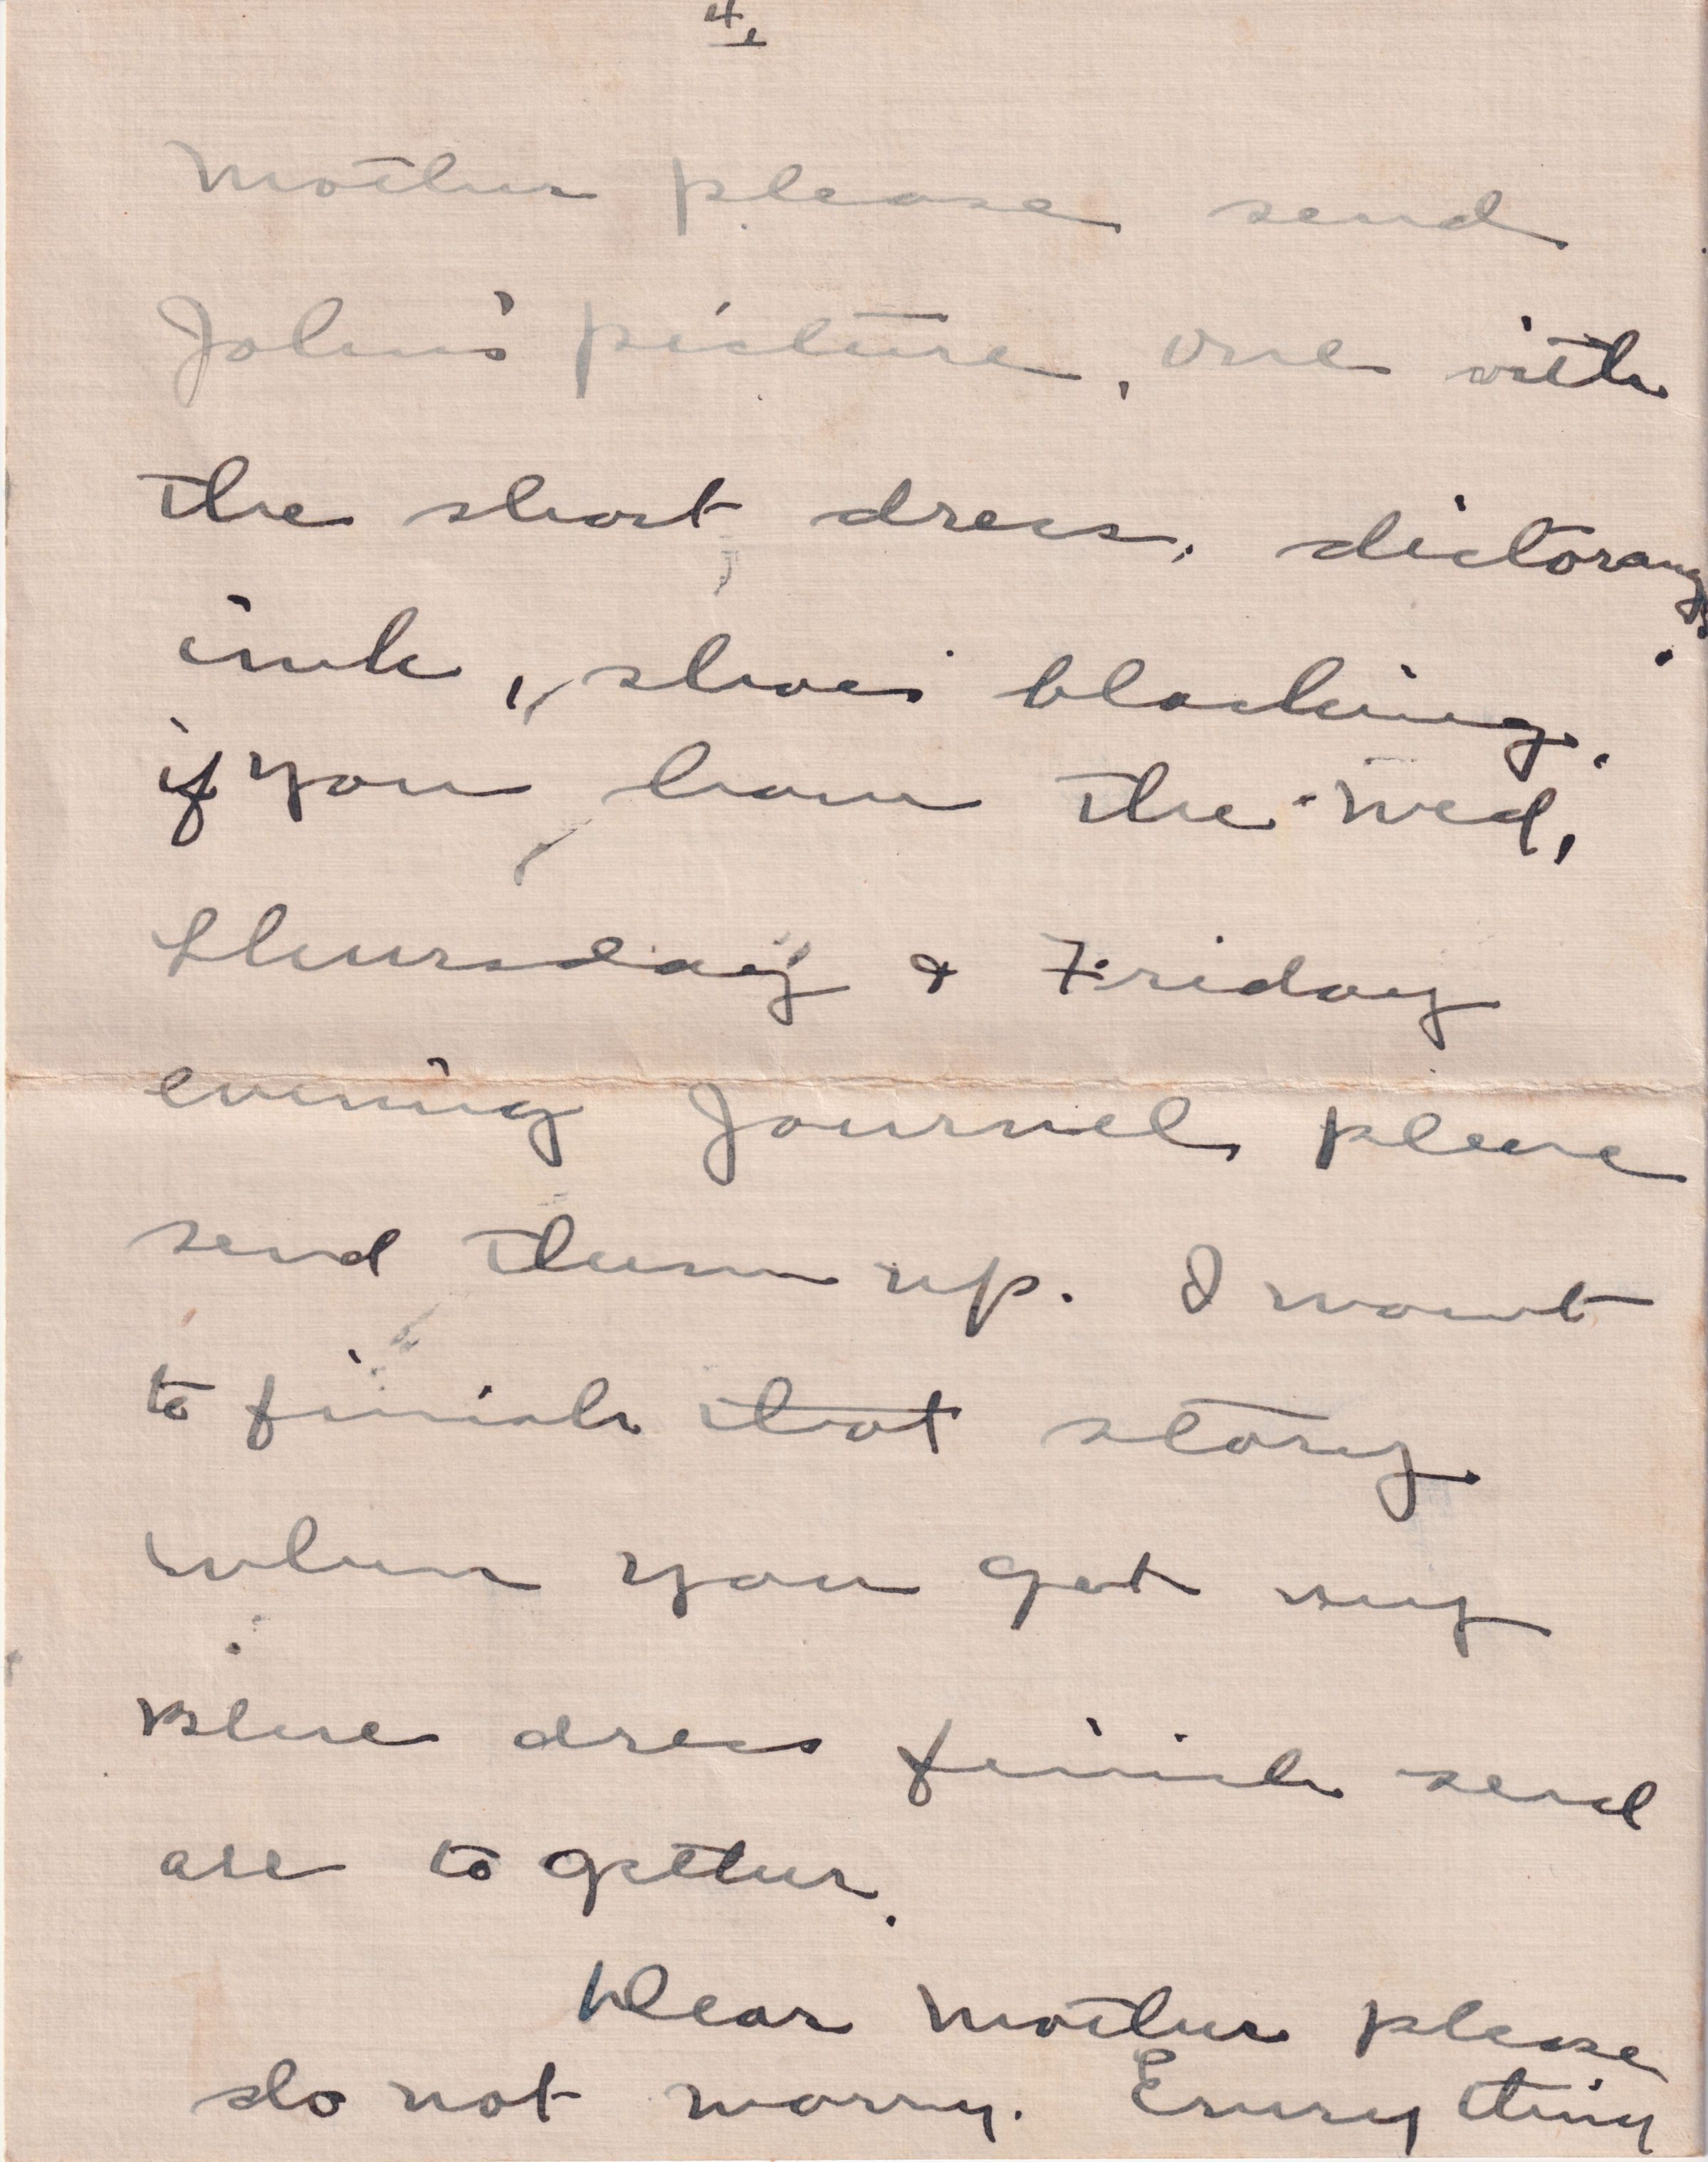 4.
Mother please send
John's picture, one with
the short dress, dictorang
ink, shoes blacking,
if you have the Wed,
Thursday & Friday
evening Journel please
send them up. I want
to finish that story.
When you get my
Blue dress finish send
all to gether.
Dear Mother please
do not worry. Every thing